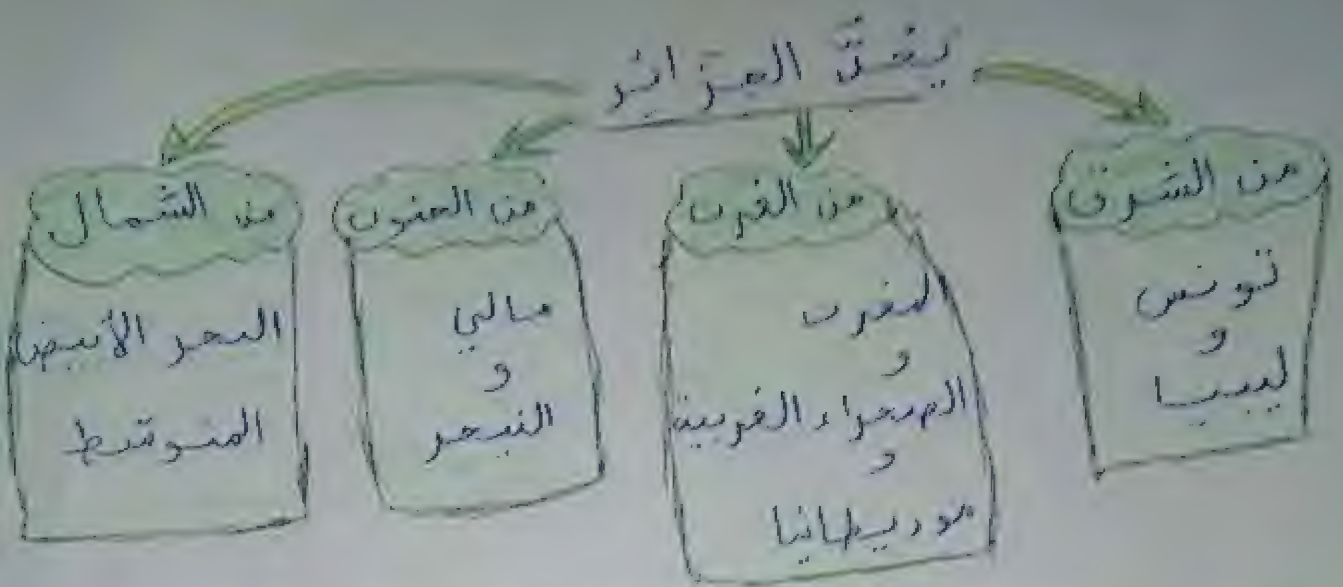 يحدّ الجزائر
من الشرق
تونس
و
ليبيا
من الغرب
المغرب
و
الصحراء الغربية
و
موريطانيا
من الجنوب
مالي
و
النيجر
من الشمال
البحر الأبيض
المتوسط